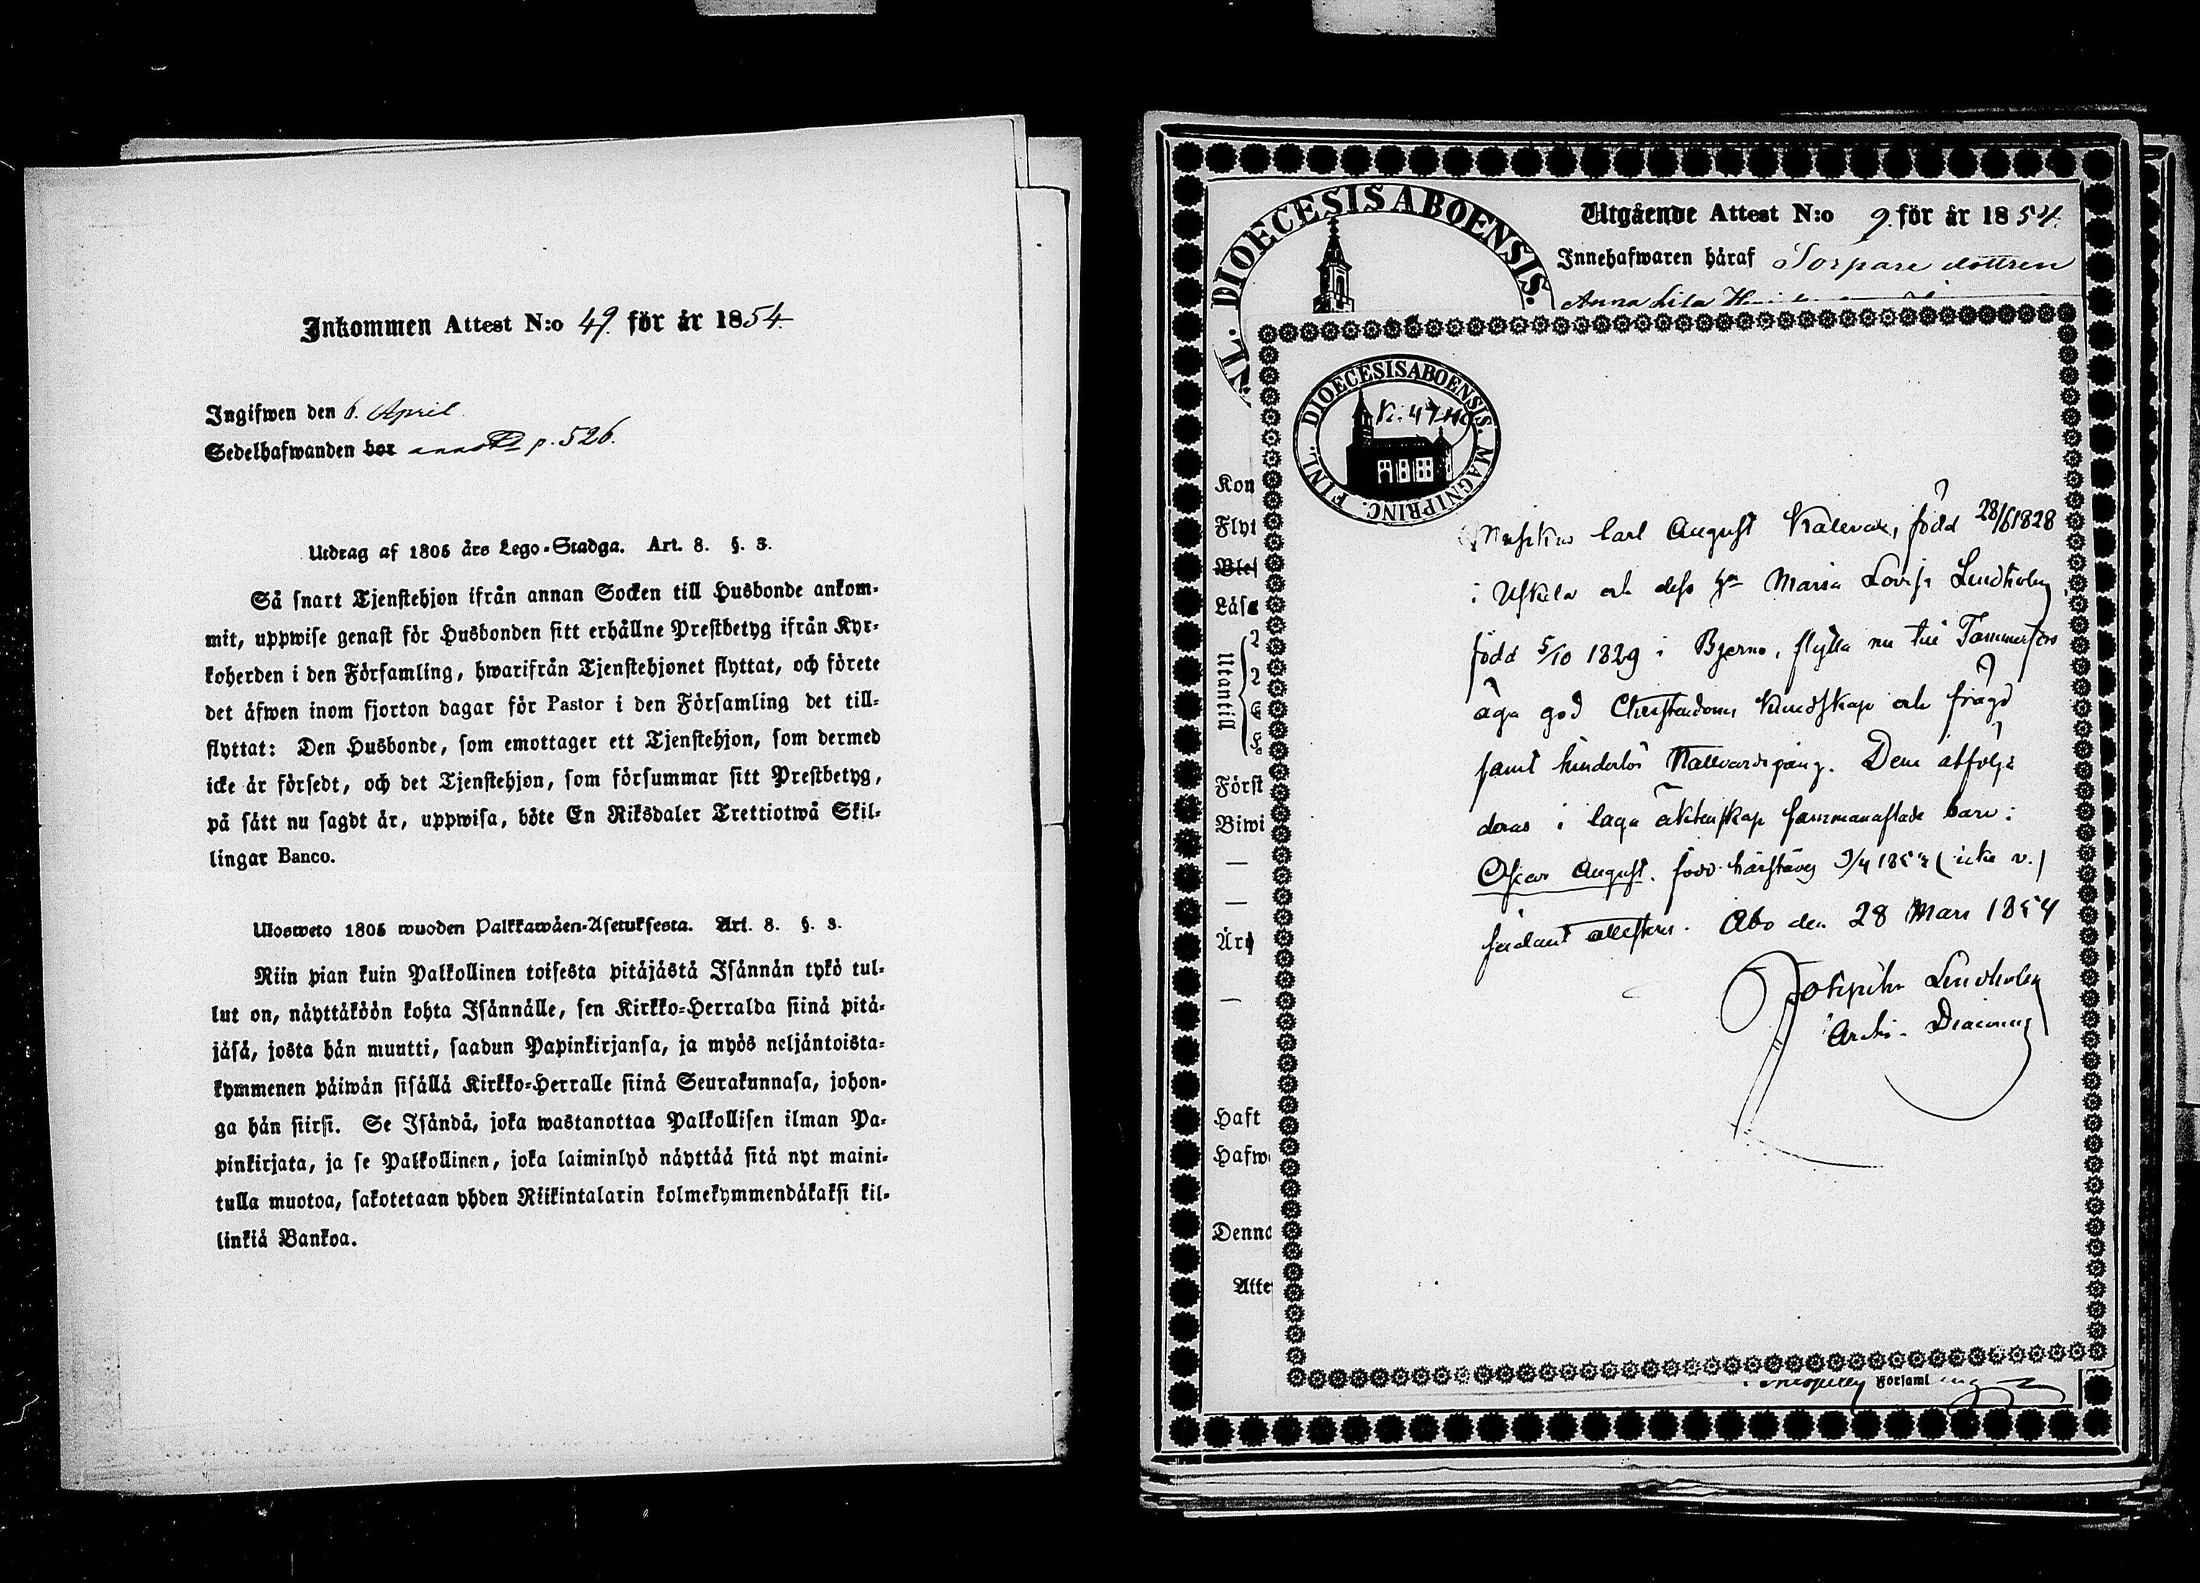 Inkommen Attest N:o 49. för år 1854.
Ingifwen den 6. April.
Sedelhafwanden bor p. 526.
Utdrag af 1805 års Lego-Stadga. Art. 8. §. 3.
Så snart Tjenstehjon ifrån annan Socken till Husbonde ankom-
mit, uppwise genast för Husbonden sitt erhållne Prestbetyg ifrån Kyr-
koherden i den Församling, hwarifrån Tjenstehjonet flyttat, och förete
det åfwen inom fjorton dagar för Pastor i den Församling det till-
flyttat: Den Husbonde, som emottager ett Tjenstehjon, som dermed
icke år försedt, och det Tjenstehjon, som försummar sitt Prestbetyg,
på sått nu sagdt år, uppwisa, böte En Riksdaler Trettiotwå Skil-
lingar Banco.
Ulosweto 1805 wuoden Palkkawåen-Asetuksesta. Art. 8. §. 3.
Niin pian kuin Palkollinen toisesta pitåjåstå Isånnån tykö tul-
lut on, nåyttåköön kohta Isånnålle, sen Kirkko-Herralda siinå pitå-
jåså, josta hån muutti, saadun Papinkirjansa, ja myös neljåntoista-
kymmenen påiwån sisållå Kirkko-Herralle siinå Seurakunnasa, johon-
ga hån siirsi. Se Isåndå, joka wastanottaa Palkollisen ilman Pa-
pinkirjata, ja se Palkollinen, joka laiminlyö nåyttåå sitå nyt maini-
tulla muotoa, sakotetaan yhden Riikintalarin kolmekymmendåkaksi kil-
linkiå Bankoa.
Utgående Attest N:o 9. för år 1854.
Innehafwaren håraf Torpare dottren
Anna Lisa
DIOECESIS ABOENSIS.
DIOECESIS ABOENSIS. MAGNI PRINC. FINL.
Kon
Flyt
Bles
Låse
Utantill
Först
Biwi
Haft
Hafw
Denna
Atte
Carl August född 28/6 1828
i Uskela och dess Maria Lovisa Lindholm
född 5/10 1829 i Bjerno, flytta nu till Tammerfors
äga god Christendoms kundskap och frägd
samt hinderlös Nattvardsgång. Dem åtfölje
deras i laga äktenskap sammanaflade barn:
Oscar August. född härstädes (icke v.)
sådant attesteras. Åbo den 28 Mars 1854
Lindholm
Archi-Diaconus
Forsaml